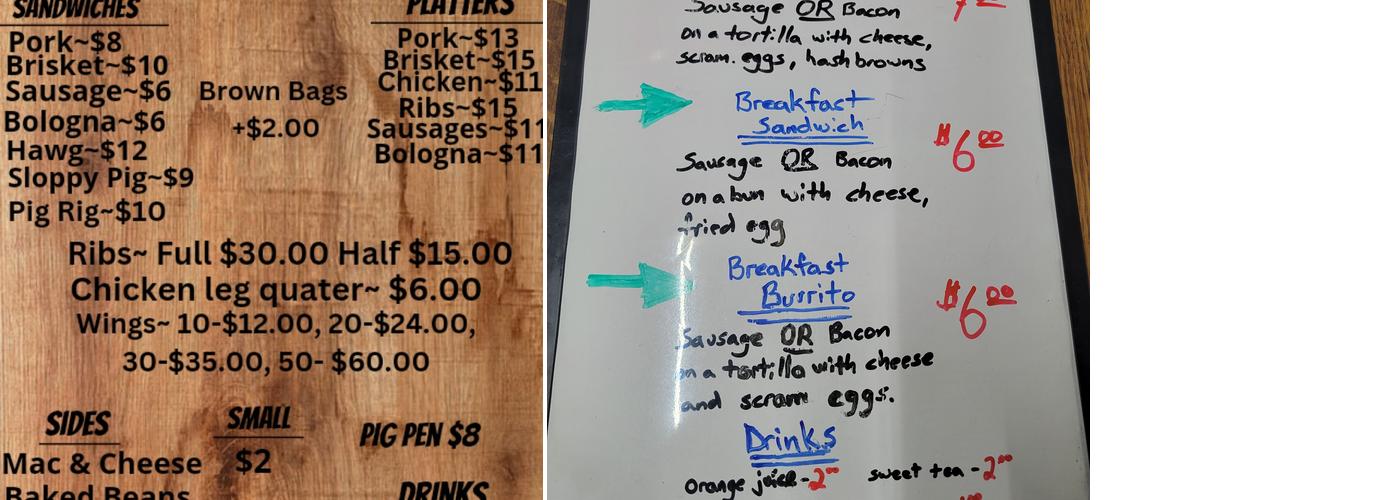 SANDWICHES
Pork~$8
Brisket~$10
Sausage~$6
Bologna~$6
Hawg~$12
Sloppy Pig~$9
Pig Rig~$10
Brown Bags
+$2.00
PLATTERS
Pork~$13
Brisket~$15
Chicken~$11
Ribs~$15
Sausages~$11
Bologna~$11
Ribs~ Full $30.00 Half $15.00
Chicken leg quater~ $6.00
Wings~ 10-$12.00, 20-$24.00,
30-$35.00, 50- $60.00
SIDES
SMALL
PIG PEN $8
Mac & Cheese $2
Baked Beans
DRINKS
Sausage OR Bacon
on a tortilla with cheese,
scram. eggs, hash browns
Breakfast
Sandwich
$6.00
Sausage OR Bacon
on a bun with cheese,
fried egg
Breakfast
Burrito
$6.00
Sausage OR Bacon
on a tortilla with cheese
and scram eggs.
Drinks
orange juice - 2.00 sweet tea - 2.00